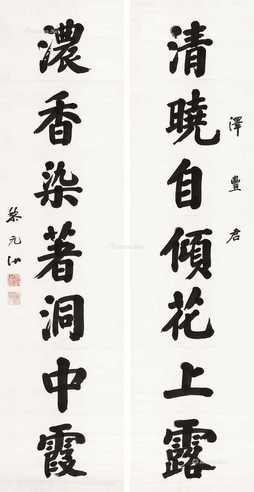 清曉自傾花上露
澤豐君
濃香染著洞中霞
黎元